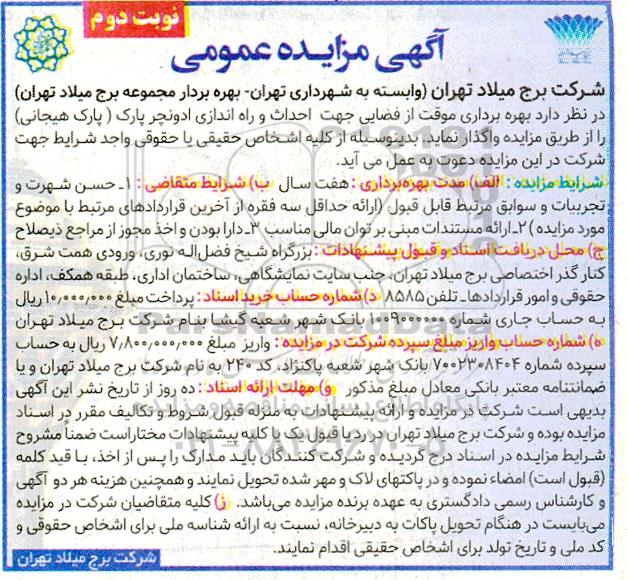 نوبت دوم
آگهی مزایده عمومی
شرکت برج میلاد تهران (وابسته به شهرداری تهران- بهره بردار مجموعه برج میلاد تهران)
در نظر دارد بهره برداری موقت از فضایی جهت احداث و راه اندازی ادونچر پارک ( پارک هیجانی)
را از طریق مزایده واگذار نماید. بدینوسیله از کلیه اشخاص حقیقی یا حقوقی واجد شرایط جهت
شرکت در این مزایده دعوت به عمل می آید.
شرایط مزایده : الف) مدت بهره‌برداری : هفت سال ب) شرایط متقاضی : ۱ـ حسن شهرت و
تجربیات و سوابق مرتبط قابل قبول (ارائه حداقل سه فقره از آخرین قراردادهای مرتبط با موضوع
مورد مزایده ) ۲ـ ارائه مستندات مبنی بر توان مالی مناسب ۳ـ دارا بودن و اخذ مجوز از مراجع ذیصلاح
ج) محل دریافت اسناد و قبول پیشنهادات : بزرگراه شیخ فضل‌اله نوری، ورودی همت شرق،
کنار گذر اختصاصی برج میلاد تهران، جنب سایت نمایشگاهی، ساختمان اداری، طبقه همکف، اداره
حقوقی و امور قراردادها ـ تلفن ۸۵۸۵ د) شماره حساب خرید اسناد : پرداخت مبلغ ۱۰/۰۰۰/۰۰۰ ریال
به حساب جاری شماره ۱۰۰۹۰۰۰۰۰۰ بانک شهر شعبه گیشا بنام شرکت برج میلاد تهران
ه) شماره حساب واریز مبلغ سپرده شرکت در مزایده : واریز مبلغ ۷/۸۰۰/۰۰۰/۰۰۰ ریال به حساب
سپرده شماره ۷۰۰۲۳۰۸۴۰۴ بانک شهر شعبه پاکنژاد، کد ۲۴۰ به نام شرکت برج میلاد تهران و یا
ضمانتنامه معتبر بانکی معادل مبلغ مذکور و) مهلت ارائه اسناد : ده روز از تاریخ نشر این آگهی
بدیهی است شرکت در مزایده و ارائه پیشنهادات به منزله قبول شروط و تکالیف مقرر در اسناد
مزایده بوده و شرکت برج میلاد تهران در رد یا قبول یک یا کلیه پیشنهادات مختار است ضمناً مشروح
شرایط مزایده در اسناد درج گردیده و شرکت کنندگان باید مدارک را پس از اخذ، با قید کلمه
(قبول است) امضاء نموده و در پاکتهای لاک و مهر شده تحویل نمایند و همچنین هزینه هر دو آگهی
و کارشناس رسمی دادگستری به عهده برنده مزایده می‌باشد. ز) کلیه متقاضیان شرکت در مزایده
می‌بایست در هنگام تحویل پاکات به دبیرخانه، نسبت به ارائه شناسه ملی برای اشخاص حقوقی و
کد ملی و تاریخ تولد برای اشخاص حقیقی اقدام نمایند.
شرکت برج میلاد تهران